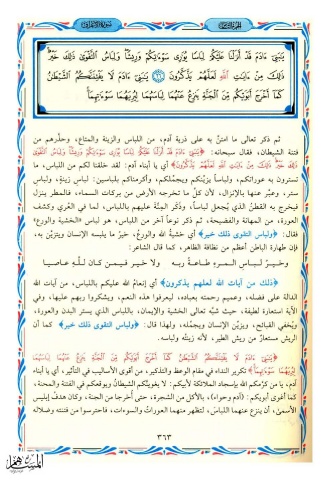 يَٰبَنِىٓ ءَادَمَ قَدْ أَنزَلْنَا عَلَيْكُمْ لِبَاسًا يُوَٰرِى سَوْءَٰتِكُمْ وَرِيشًا وَلِبَاسُ ٱلتَّقْوَىٰ ذَٰلِكَ خَيْرٌ
ذَٰلِكَ مِنْ ءَايَٰتِ ٱللَّهِ لَعَلَّهُمْ يَذَّكَّرُونَ يَٰبَنِىٓ ءَادَمَ لَا يَفْتِنَنَّكُمُ ٱلشَّيْطَٰنُ
كَمَآ أَخْرَجَ أَبَوَيْكُم مِّنَ ٱلْجَنَّةِ يَنزِعُ عَنْهُمَا لِبَاسَهُمَا لِيُرِيَهُمَا سَوْءَٰتِهِمَآ
ثم ذكر تعالى ما امتنَّ به على ذرية آدم، من اللباس والزينة والمتاع، وحذَّرهم من
فتنة الشيطان، فقال سبحانه: ﴿يَٰبَنِىٓ ءَادَمَ قَدْ أَنزَلْنَا عَلَيْكُمْ لِبَاسًا يُوَٰرِى سَوْءَٰتِكُمْ وَرِيشًا وَلِبَاسُ ٱلتَّقْوَىٰ
ذَٰلِكَ خَيْرٌ ذَٰلِكَ مِنْ ءَايَٰتِ ٱللَّهِ لَعَلَّهُمْ يَذَّكَّرُونَ﴾ أي يا أبناء آدم: لقد خلقنا لكم من اللباس، ما
تسترون به عوراتكم، ولباساً يزيّنكم ويجمّلكم، وأكرمناكم بلباسين: لباسِ زينةٍ، ولباسِ
ستر، وعبَّر عنها بالإنزال، لأن كلَّ ما تخرجه الأرض من بركات السماء، فالمطر ينزل
فيخرج به القطنُ الذي يُجعل لباساً، وذكَّر المِنَّة عليهم باللباس، لما في العُري وكشف
العورة، من المهانة والفضيحة، ثم ذكر نوعاً آخر من اللباس، هو لباس «الخشية والورع»
فقال: ﴿ولباس التقوى ذلك خير﴾ أي خشيةُ الله والورعُ، خيرُ ما يلبسه الإنسان ويتزيّن به،
فإن طهارة الباطن أعظم من نظافة الظاهر، كما قال الشاعر:
وخيرُ لباسِ المرءِ طاعةُ ربه ولا خيرَ فيمن كان للَّهِ عاصيا
﴿ذلك من آيات الله لعلهم يذكرون﴾ أي إنعامُ الله عليكم باللباس، من آيات الله
الدالة على فضله، وعميم رحمته بعباده، ليعرفوا هذه النعم، ويشكروا ربهم عليها، وفي
الآية استعارة لطيفة، حيث شبَّه تعالى الخشية والإيمان، باللباس الذي يستر البدن والعورة،
ويُخفي القبائح، ويزيّن الإنسان ويجمّله، ولهذا قال: ﴿ولباس التقوى ذلك خير﴾ كما أن
الريش مستعارٌ من ريش الطير، لأنه زينتُه ولباسه.
﴿يَٰبَنِىٓ ءَادَمَ لَا يَفْتِنَنَّكُمُ ٱلشَّيْطَٰنُ كَمَآ أَخْرَجَ أَبَوَيْكُم مِّنَ ٱلْجَنَّةِ يَنزِعُ عَنْهُمَا لِبَاسَهُمَا
لِيُرِيَهُمَا سَوْءَٰتِهِمَآ﴾ تكرير النداء في مقام الوعظ والتذكير، من أقوى الأساليب في التأثير، أي يا أبناء
آدم، يا من كرَّمكم الله بإسجاد الملائكة لأبيكم: لا يغوينَّكم الشيطانُ ويوقعكم في الفتنة والمحنة،
كما أغوى أبويكم: «آدم وحواء»، بالأكل من الشجرة، حتى أخرجا من الجنة، وكان هدفُ إبليس
الأسمى، أن ينزع عنهما اللباسَ، لتظهر منهما العوراتُ والسوءات، فاحترسوا من فتنته وضلاله
٣٦٣